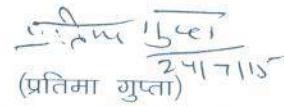 प्रतिमा गुप्ता
24/7/15
(प्रतिमा गुप्ता)